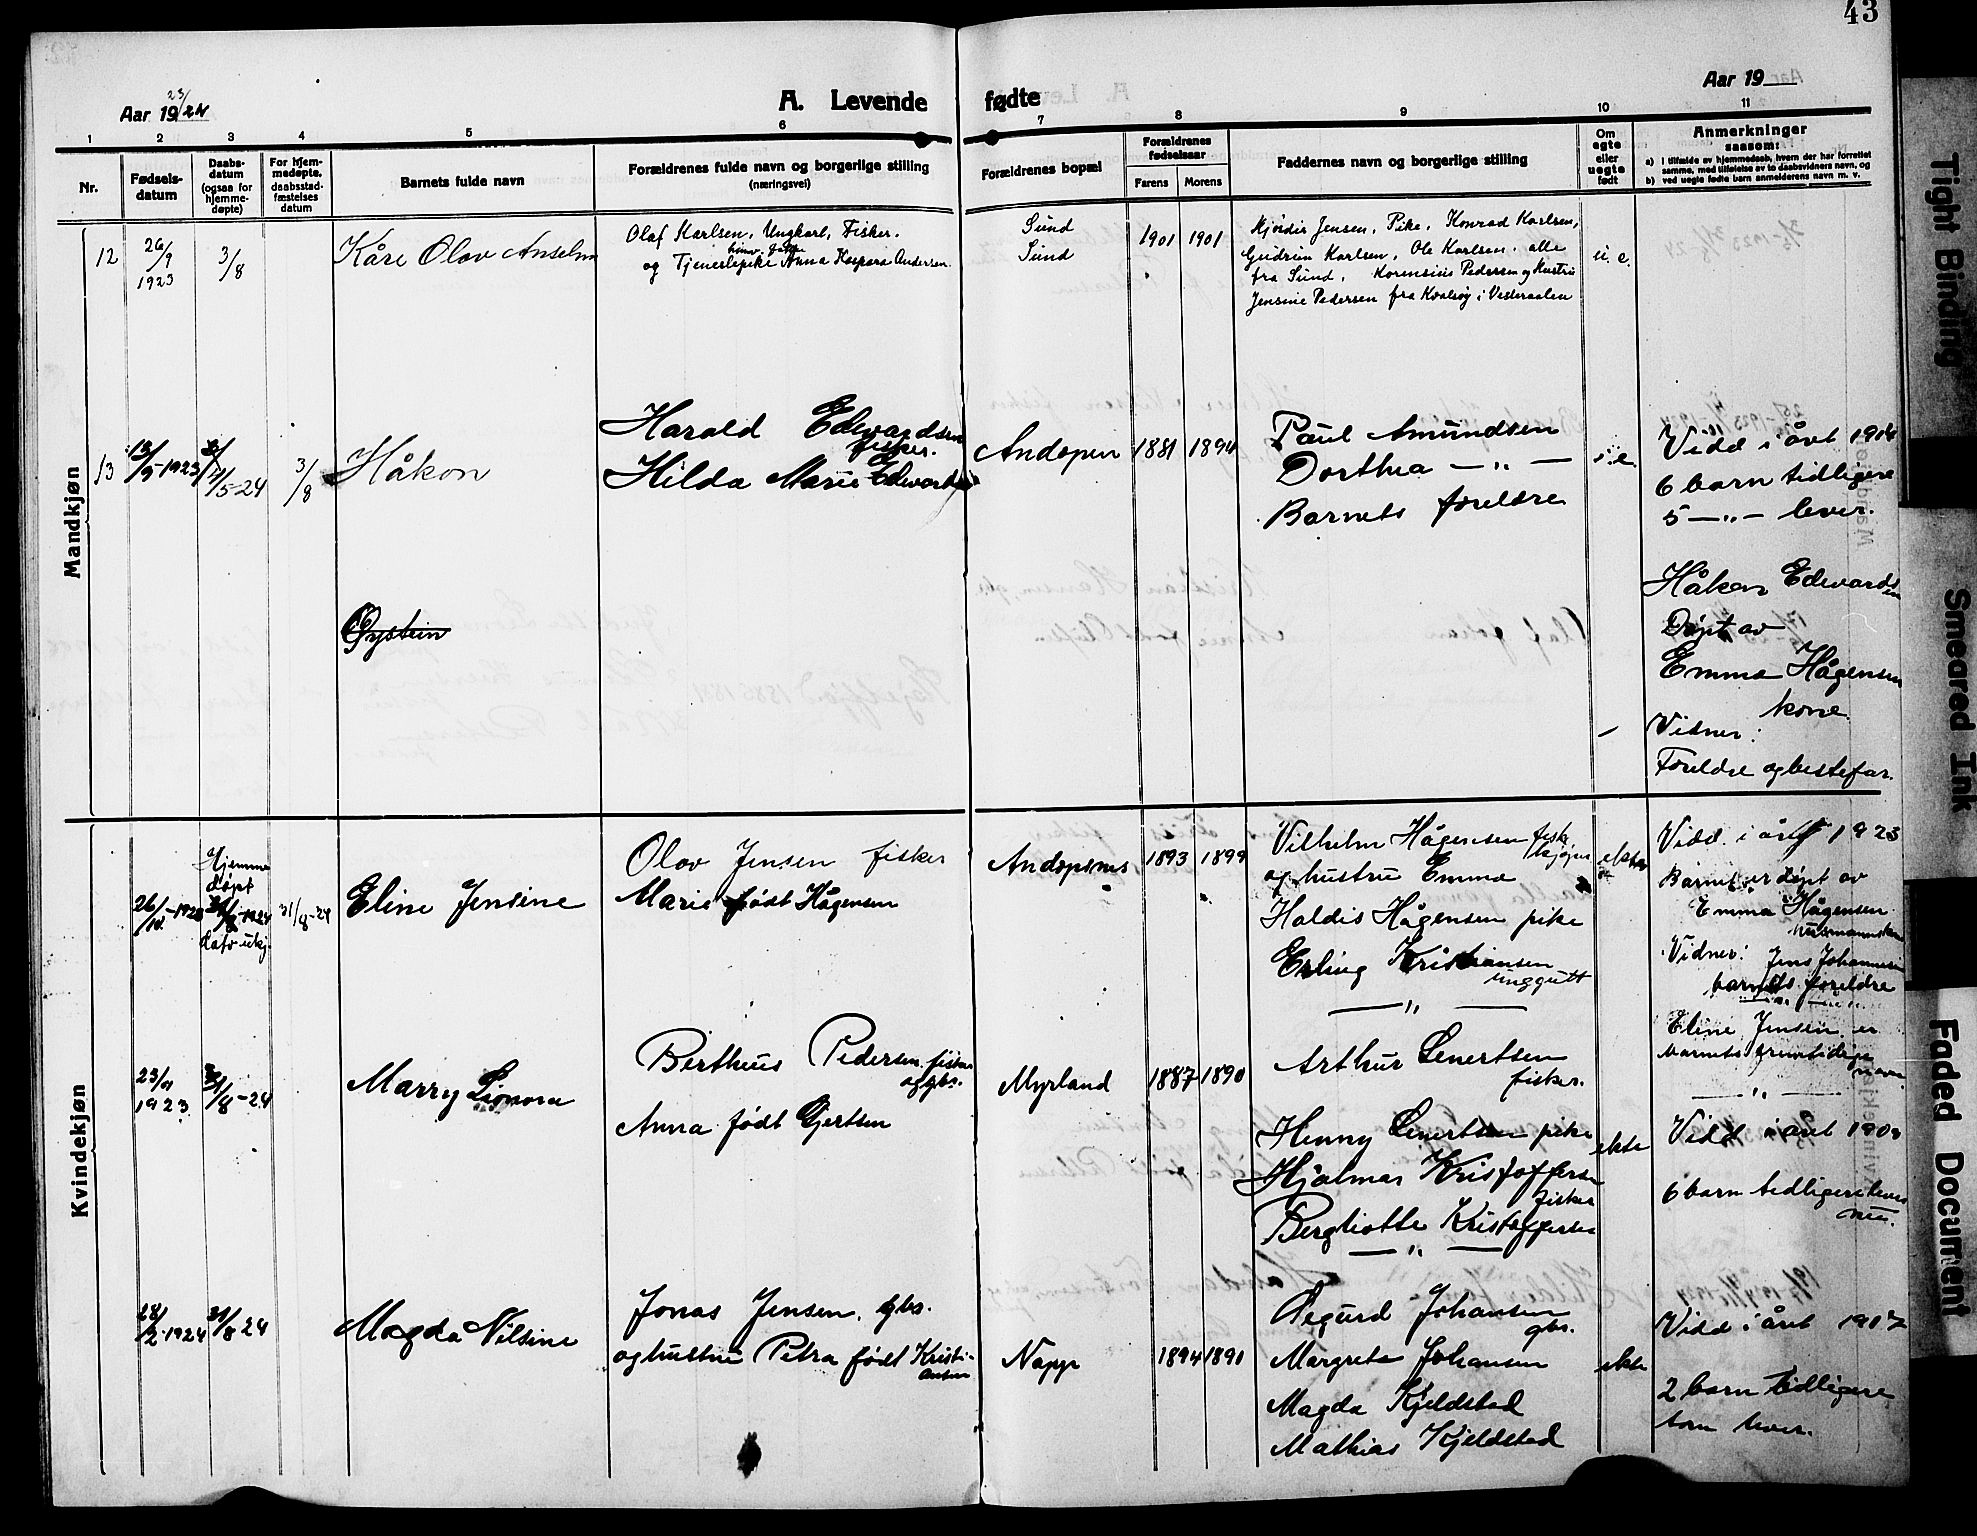 43
Aar 19 23/24
A. Levende
fødte
Aar 19
1 2 3 4 5 6 7 8 9 10 11
Nr.
Fødsels-
datum
Daabs-
datum
(ogsaa for
hjemme-
døpte)
For hjem-
medøpte.
daabsstad-
fæstelses
datum
Barnets fulde navn
Forældrenes fulde navn og borgerlige stilling
(næringsvei)
Forældrenes bopæl
Forældrenes
fødselsaar
Farens Morens
Faddernes navn og borgerlige stilling
Om
ægte
eller
uegte
født
Anmerkninger
saasom:
a) i tilfælde av hjemmedaab, hvem der har forrettet
samme, med tilføielse av to daabsvidners navn, og
b) ved uegte fødte barn anmelderens navn m. v.
Mandkjøn
12
26/9
1923
3/8
Kåre Olav Anselm
Olaf Karlsen, Ungkarl, Fisker.
og Tjenestepike Anna Kaspara Andersen
Sund
Sund
1901 1901
Hjørdis Jensen, Pike, Konrad Karlsen,
Gudrun Karlsen, Ole Karlsen, alle
fra Sund, Korensius Pedersen og Hustru
Jensine Pedersen fra Kvalsøy i Vesteraalen
u. e.
13
13/9-1923
4/5-24
3/8
Håkon
Harald Edwardsen
fisker.
Hilda Marie Edwards
Andopen
1881 1894
Paul Amundsen
Dorthea — „ —
Barnets foreldre
Vidd i året 1914
6 barn tidligere
5 — „ — lever.
Øystein
Håkon Edwardsen
Døpt av
Emma Hågensen
kone.
Vidner:
Foreldre og bestefar.
Kvindekjøn
26/10-1923
Hjemme
døpt
dato ukj.
31/8-24
Eline Jensine
Olav Jensen fisker
Marie født Hågensen
Andopsnes
1893 1899
Vilhelm Hågensen
og hustru Emma
Haldis Hågensen pike
Erling Kristiansen
unggutt
— „ —
Vidd. i året 1923
Barnet er døpt av
Emma Hågensen
Vidner: Jens Johannesen
barnets foreldre
Eline Jensen er
Barnets fremtidige
navn.
— „ —
1923
31/8-24
Marry Lionora
Bertheus Pedersen fisker
og gbr.
Anna født Gjertsen
Myrland
1887 1890
Arthur Lenertsen
fisker.
Henny Lenertsen pike
Hjalmar Kristoffersen
fisker
Bergliotte Kristoffersen
— „ —
ekte
Vidd i året 1909
6 barn tidligere lever
nu.
28/2-1924
31/8-24
Magda Nilsine
Jonas Jensen, gbr.
og hustru Petra født Kristi-
ansen
Napp
1894 1891
Sigurd Johansen
gbr.
Margrete Johansen
Magda Kjeldstad
Mathias Kjeldstad
ekte
Vidd i året 1917
2 barn tidligere
som lever.
Tight Binding
Smeared Ink
Faded Document